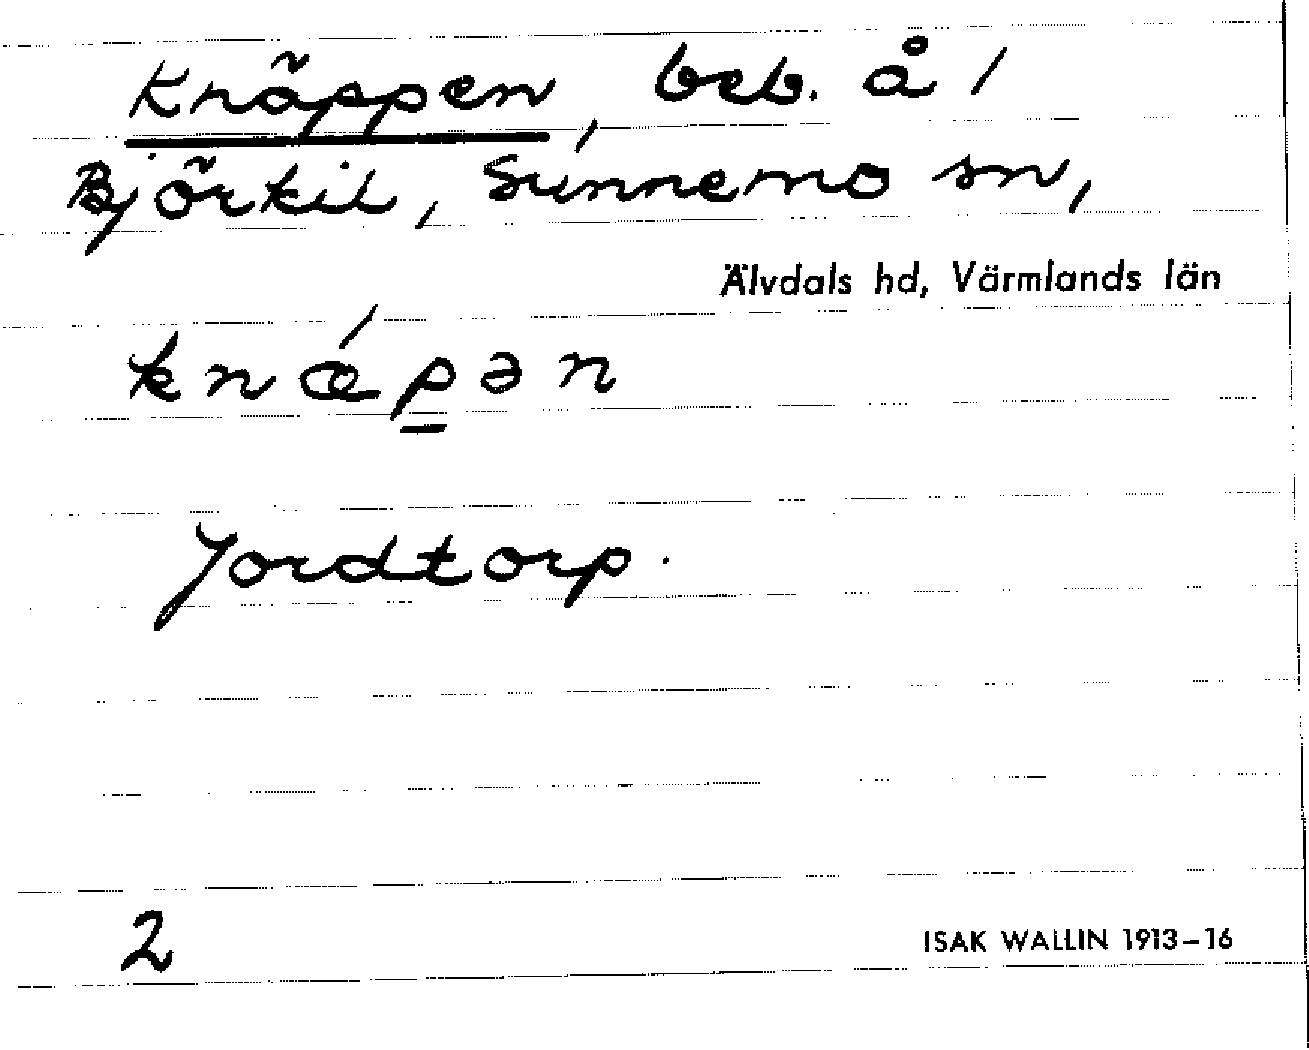 Knäppen, beb. å /
Björkil, Sunnemo sn,
Älvdals hd, Värmlands län
knǽp̳ən
Jordtorp.
2
ISAK WALLIN 1913–16